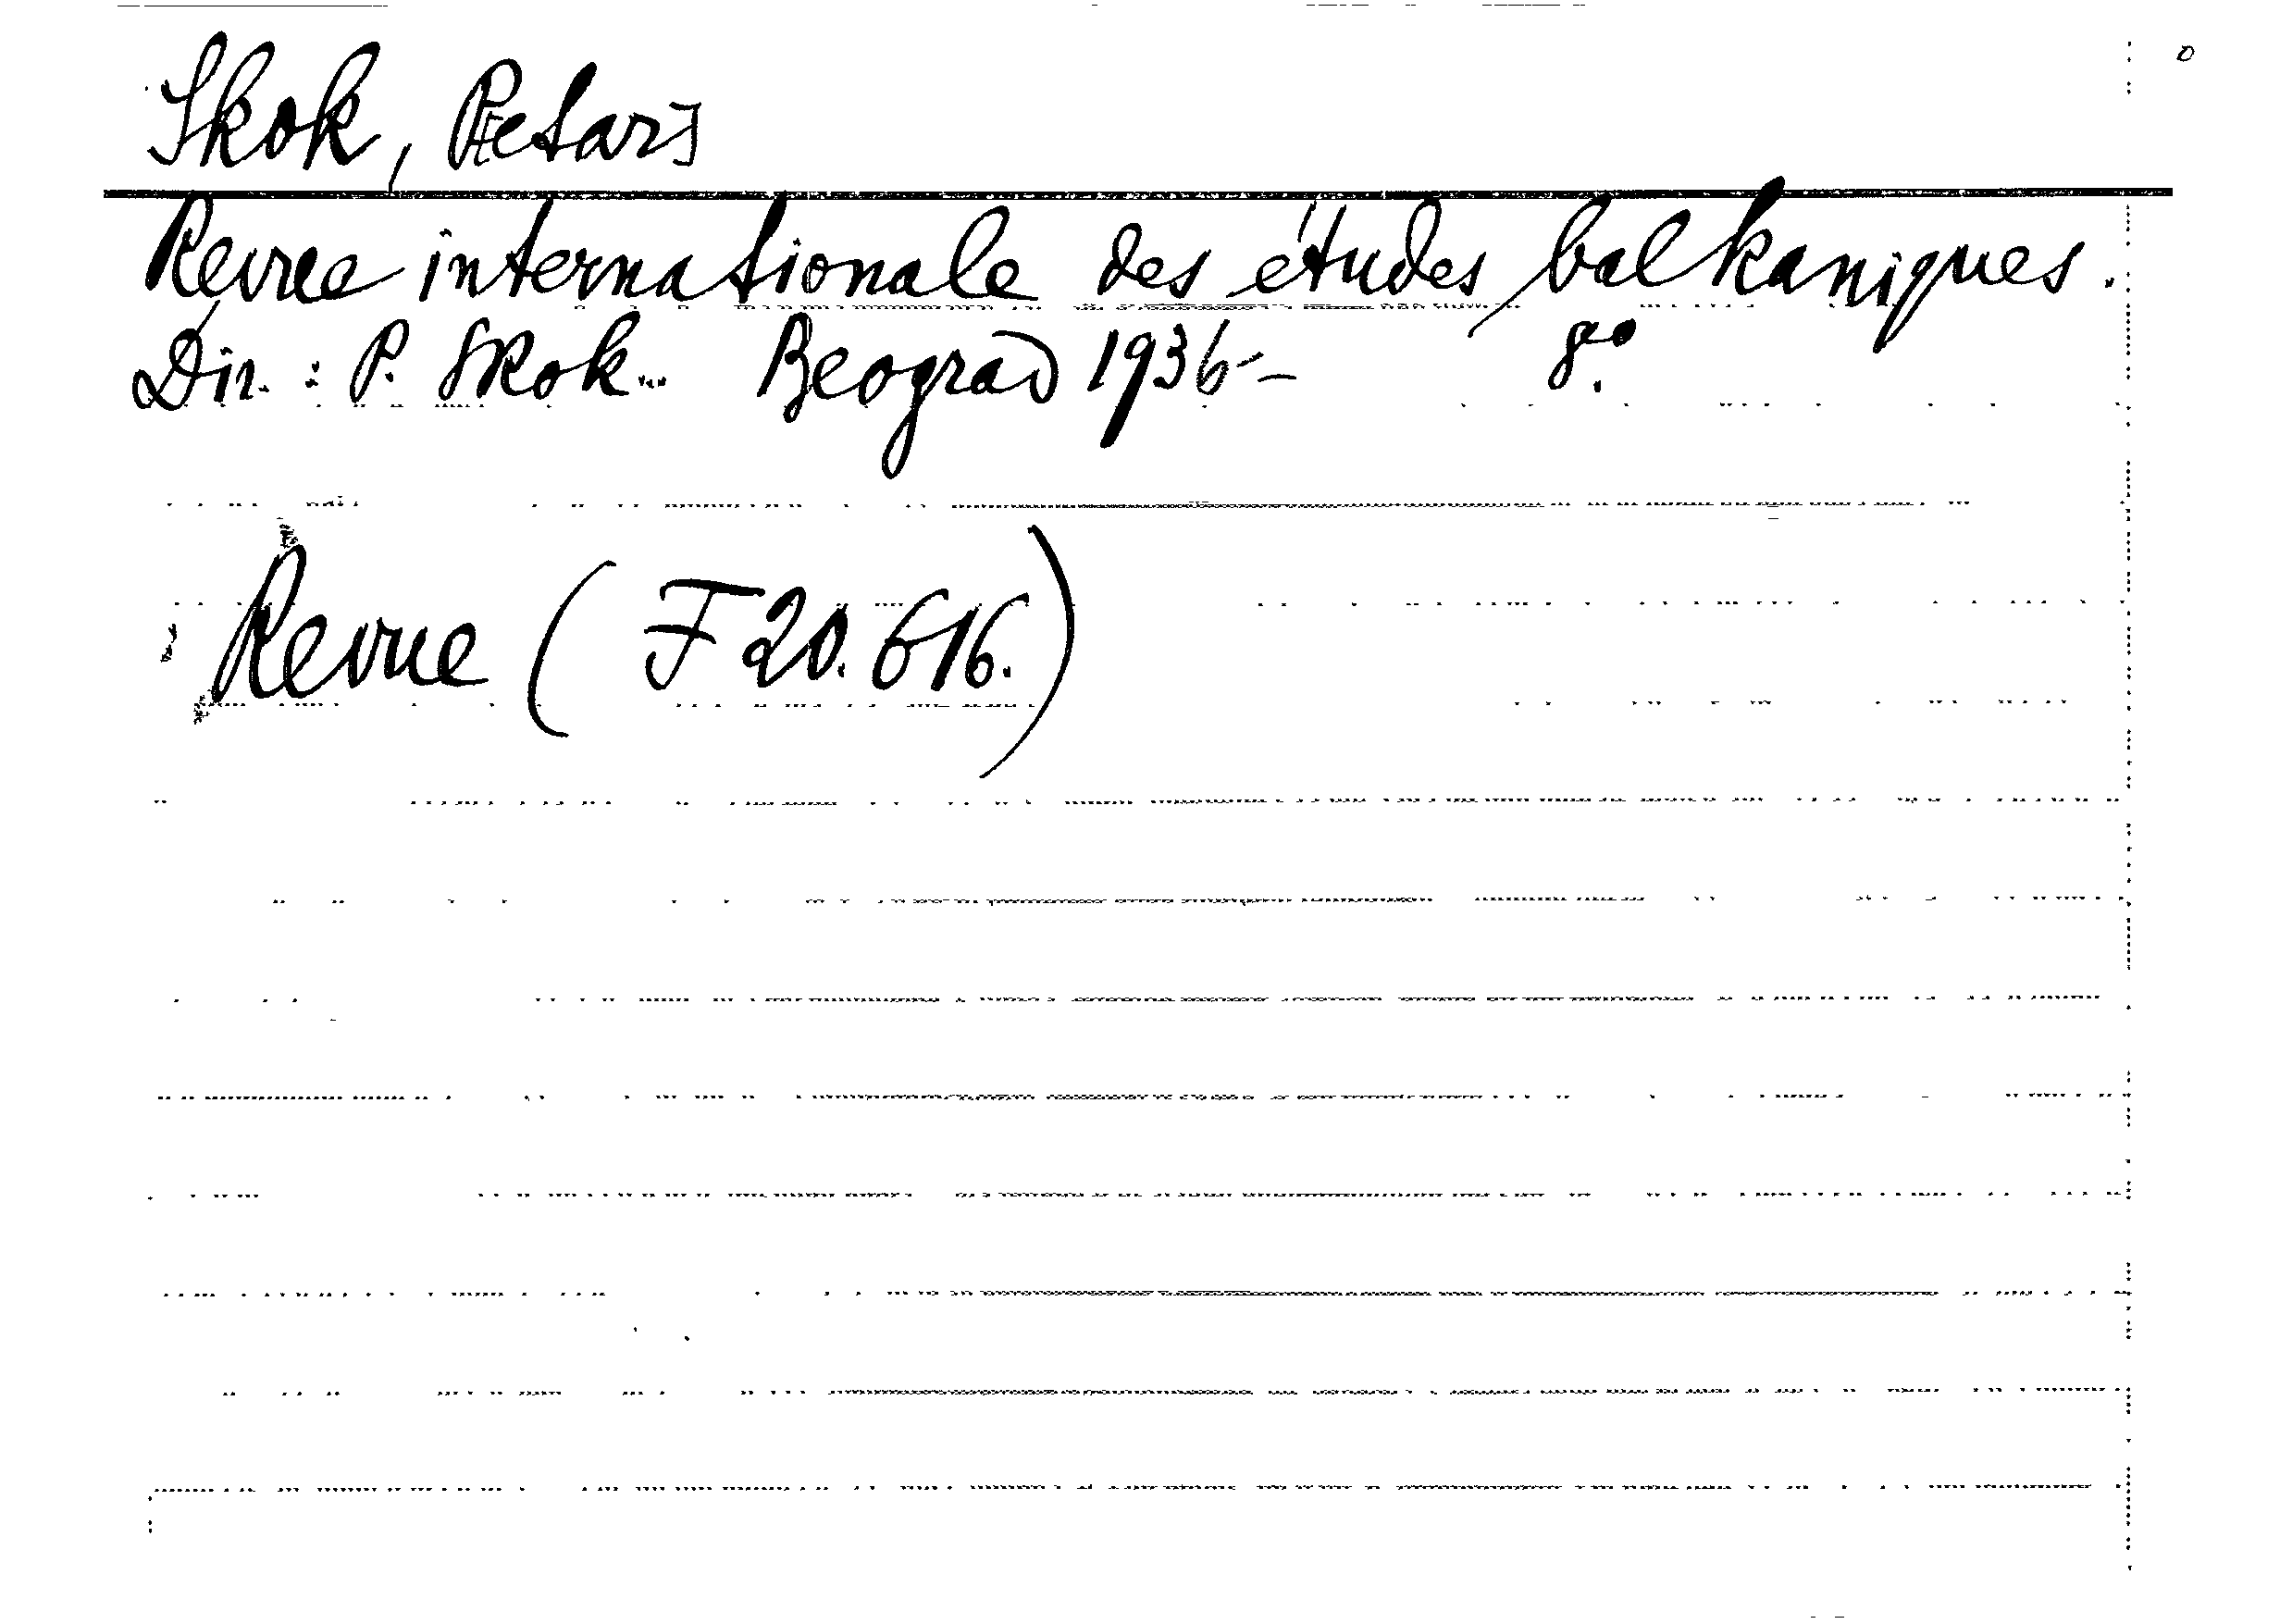 Skok, P[etar]
Revue internationale des études balkaniques.
Dir. : P. Skok. Beograd 1936- 8°.
Revue (F 20.616.)